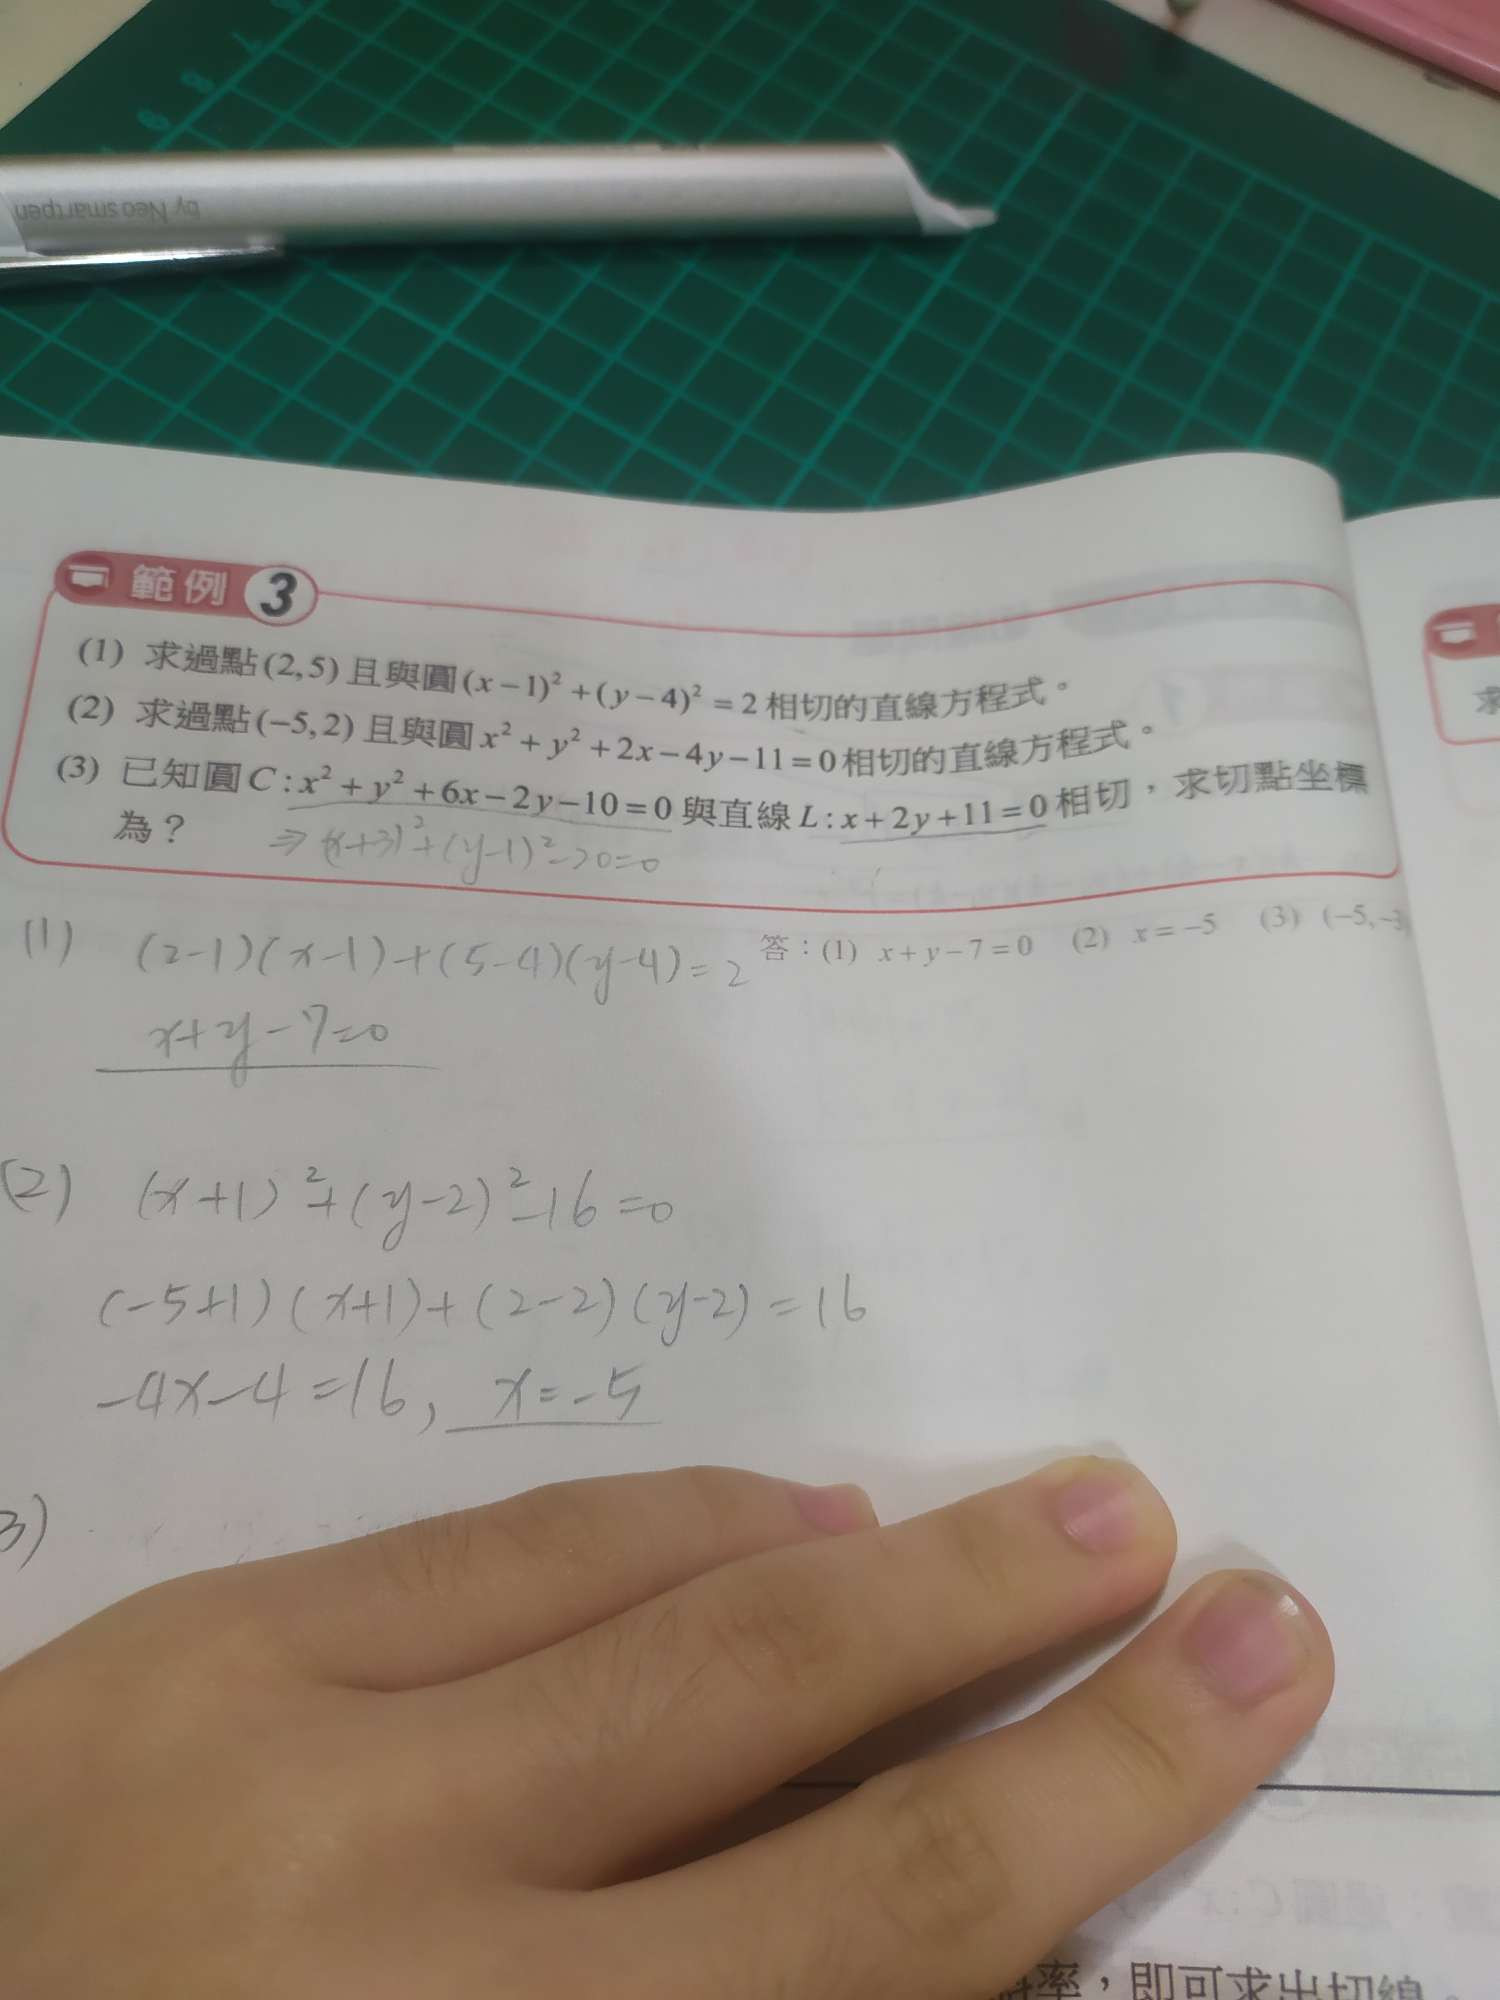 by Neosmartpen
範例 3
(1) 求過點(2,5)且與圓(x−1)²+(y−4)²=2相切的直線方程式。
(2) 求過點(−5,2)且與圓x²+y²+2x−4y−11=0相切的直線方程式。
(3) 已知圓C:x²+y²+6x−2y−10=0與直線L:x+2y+11=0相切，求切點坐標
為？
⇒(x+3)²+(y-1)²-20=0
答：(1) x+y−7=0 (2) x=−5 (3) (−5,−3
(1) (2-1)(x-1)+(5-4)(y-4)=2
x+y-7=0
(2) (x+1)²+(y-2)²-16=0
(-5+1)(x+1)+(2-2)(y-2)=16
-4x-4=16, x=-5
3)
求
率，即可求出切線。